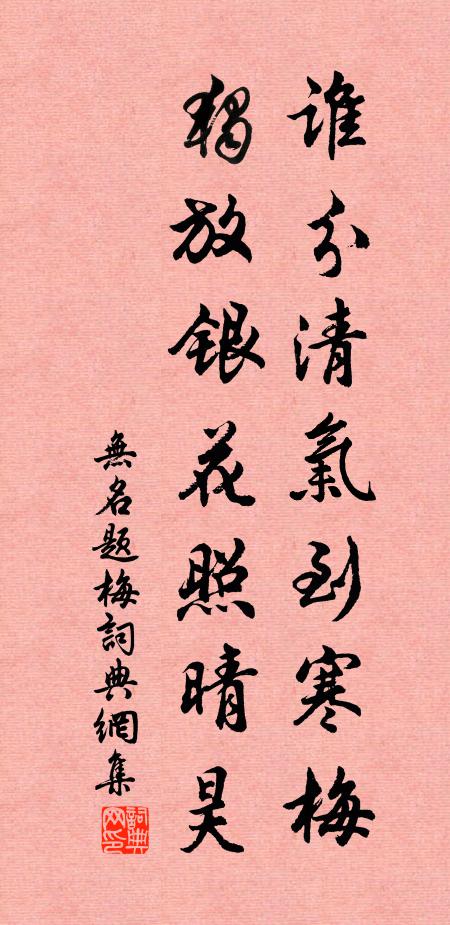 誰分清氣到寒梅
獨放銀花照晴昊
無名題梅詞典網集
詞典网印